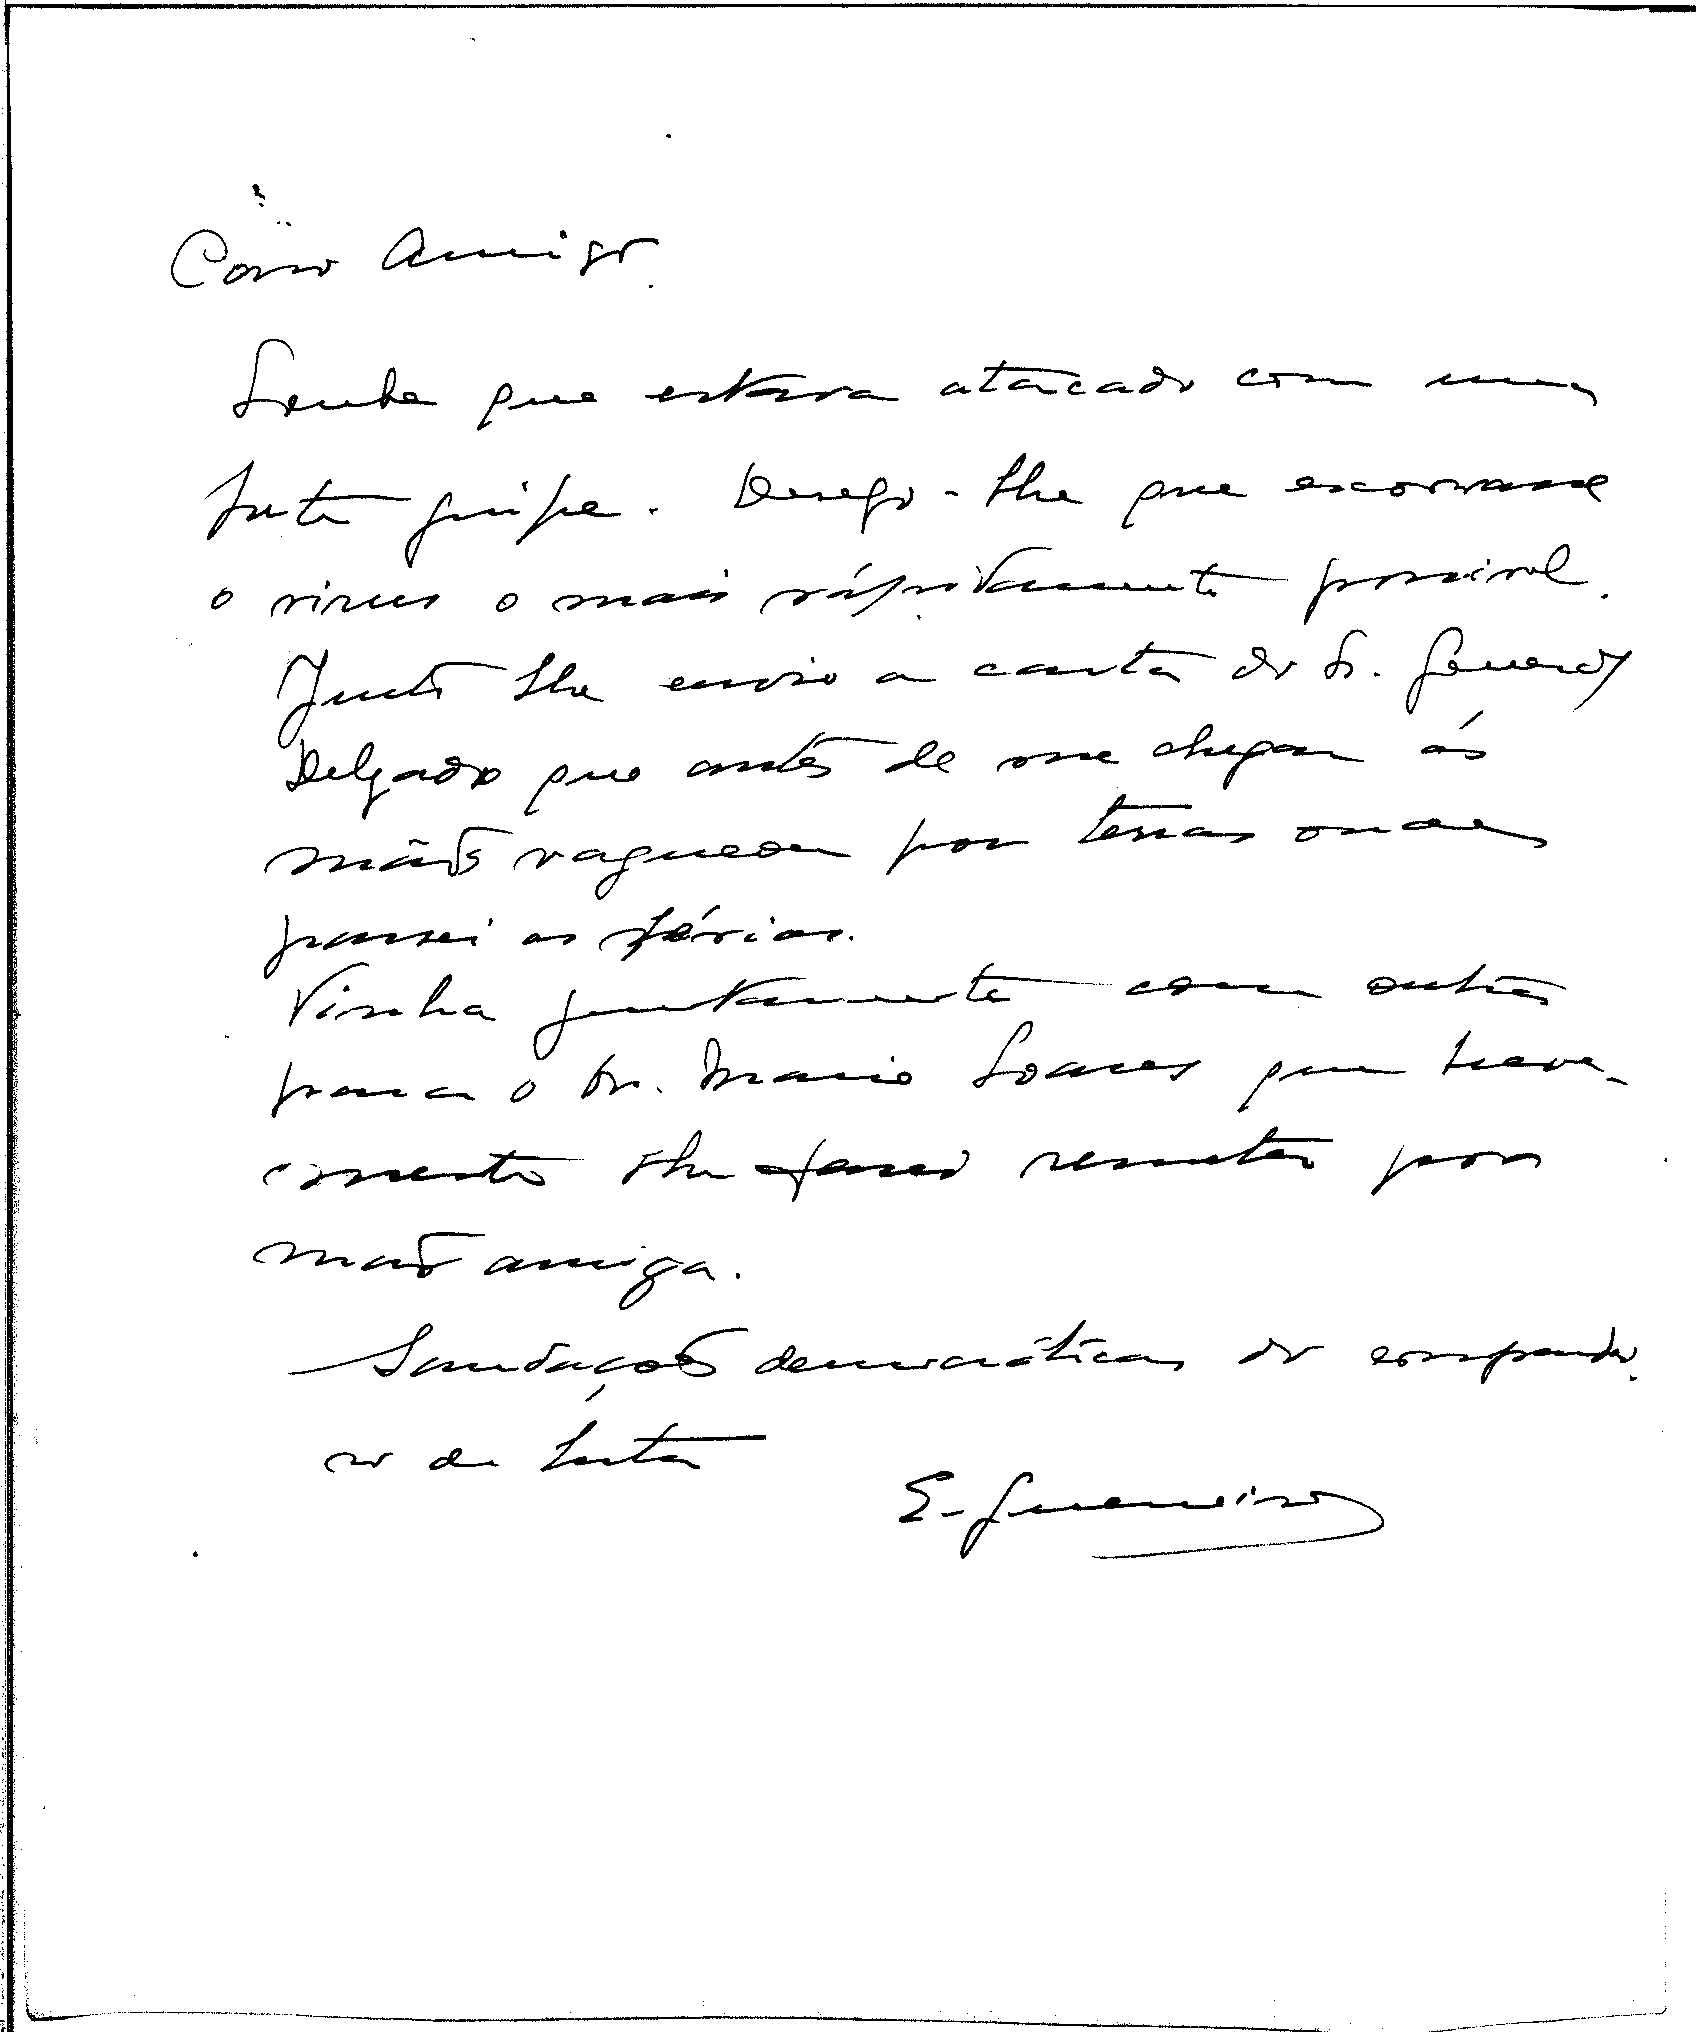 Caro Amigo.
Soube que estava atacado com uma
forte gripe. Desejo-lhe que escorrace
o virus o mais rápidamente possivel.
Junto lhe envio a carta do Sr. General
Delgado que antes de me chegar ás
mãos vagueou por terras onde
passei as férias.
Vinha juntamente com outra
para o Dr. Mario Soares que breve-
mente lhe farei remeter por
mão amiga.
Saudações democráticas do companhei-
ro de luta
E. Guerreiro